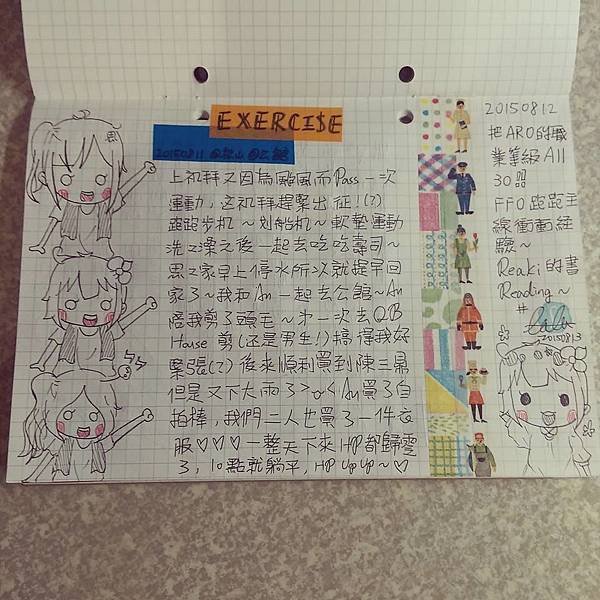 EXERCISE
20150811 @松山 @公館
上礼拜又因為颱風而Pass一次
運動,这礼拜趕緊出征!(?)
跑跑步机~划船机~軟墊運動
洗了澡之後一起去吃吃壽司~
黑之家早上停水所以就提早回
家了~我和An一起去公館~An
陪我剪了頭毛~才一次去QB
House 剪(还是男生!)搞得我好
緊張(?)後來順利買到陳三鼎
但是又下大雨了>o<An買了自
拍棒,我們二人也買了一件衣
服♡♡♡一整天下來HP都歸零
了,10點就躺平,HP UpUp~♡
20150812
把ARO的職
業等級All
30㗊
FFO跑跑主
線衝衝經
驗~
Reaki的書
Reading~
#
20150813